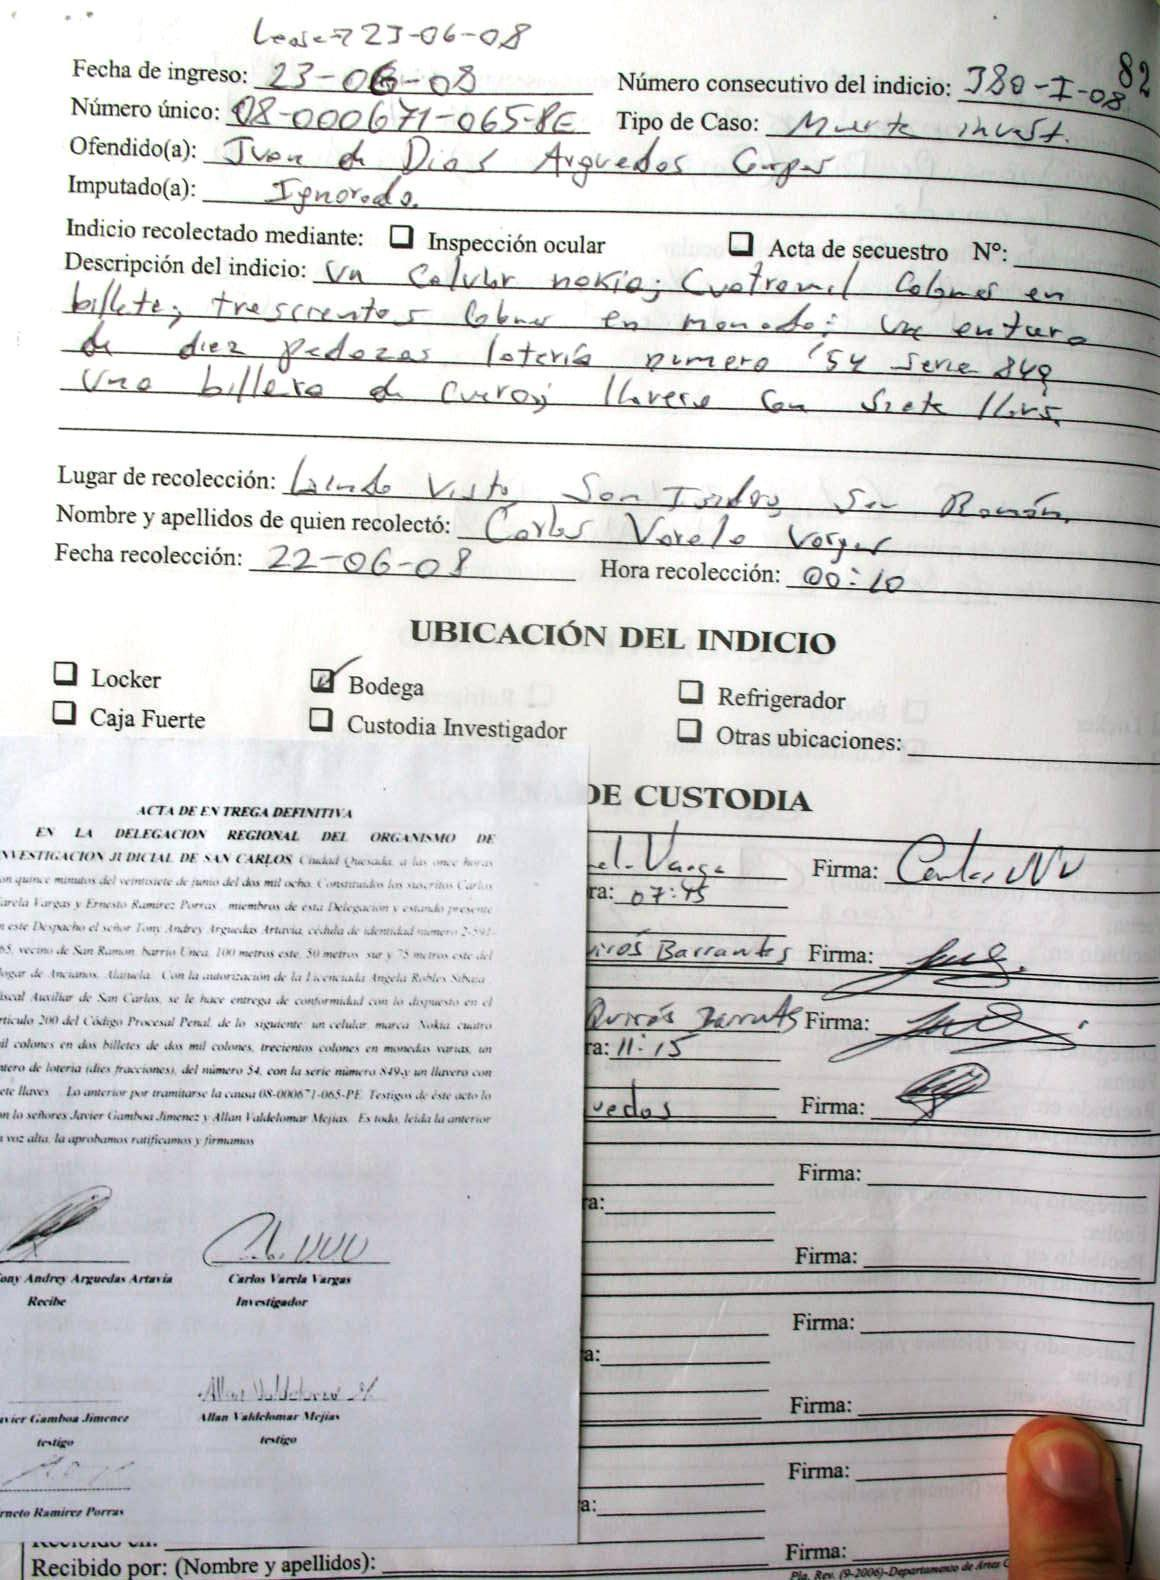 Lease=> 23-06-08
82
Fecha de ingreso: 23-06-08 Número consecutivo del indicio: 380-I-08
Número único: 08-000671-065-PE Tipo de Caso: Muerte invest.
Ofendido(a): Juan de Dios Arguedas
Imputado(a): Ignorado.
Indicio recolectado mediante: Inspección ocular Acta de secuestro N°:
Descripción del indicio: Un Celular nokia; Cuatromil Colones en
billete; trescientos Colones en moneda; un entero
de diez pedazos lotería numero 54 serie 849
Una billetera de Cuero; llavero con siete llaves
Lugar de recolección: Linda Vista San Isidro, San Ramón.
Nombre y apellidos de quien recolectó: Carlos Varela Vargas
Fecha recolección: 22-06-08 Hora recolección: 00:10
UBICACIÓN DEL INDICIO
Locker Bodega Refrigerador
Caja Fuerte Custodia Investigador Otras ubicaciones:
DE CUSTODIA
Varga Firma:
ra: 07:45
Quirós Barrantes Firma:
Quirós Barrantes Firma:
ra: 11:15
uedas Firma:
Firma:
ra:
Firma:
Firma:
a:
Firma:
Firma:
a:
Recibido por: (Nombre y apellidos): Firma:
Pla. Rev. (9-2006)-Departamento de Artes
ACTA DE ENTREGA DEFINITIVA
EN LA DELEGACION REGIONAL DEL ORGANISMO DE
NVESTIGACION JUDICIAL DE SAN CARLOS Ciudad Quesada, a las once horas
on quince minutos del veintisiete de junio del dos mil ocho. Constituidos los suscritos Carlos
arela Vargas y Ernesto Ramírez Porras, miembros de esta Delegación y estando presente
n este Despacho el señor Tony Andrey Arguedas Artavia, cédula de identidad número 2-591-
65, vecino de San Ramon, barrio Unca, 100 metros este, 50 metros sur y 75 metros este del
ogar de Ancianos, Alajuela. Con la autorización de la Licenciada Angela Robles Sibaja
iscal Auxiliar de San Carlos, se le hace entrega de conformidad con lo dispuesto en el
rtículo 200 del Código Procesal Penal, de lo siguiente: un celular, marca Nokia, cuatro
il colones en dos billetes de dos mil colones, trecientos colones en monedas varias, un
ntero de lotería (dies fracciones), del número 54, con la serie número 849,y un llavero con
ete llaves. Lo anterior por tramitarse la causa 08-000671-065-PE. Testigos de éste acto lo
on lo señores Javier Gamboa Jimenez y Allan Valdelomar Mejías. Es todo, leída la anterior
n voz alta, la aprobamos ratificamos y firmamos
ony Andrey Arguedas Artavia Carlos Varela Vargas
Recibe Investigador
Allan Valdelomar M
avier Gamboa Jimenez Allan Valdelomar Mejías
testigo testigo
rneto Ramírez Porras